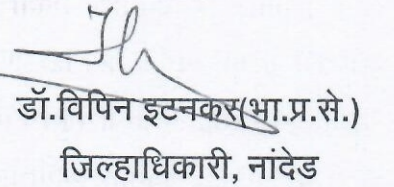 डॉ.विपिन इटनकर(भा.प्र.से.)
जिल्हाधिकारी, नांदेड